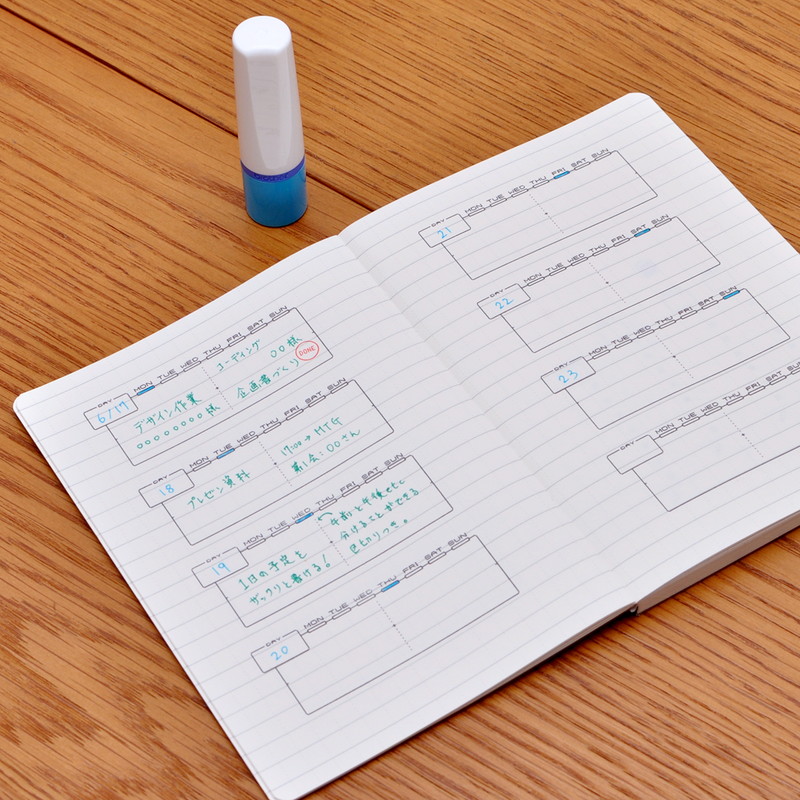 MON TUE WED THU FRI SAT SUN
DAY
6/17
デザイン作業
○○○○○○○○様
コーディング
○○様
企画書づくり
DONE
MON TUE WED THU FRI SAT SUN
DAY
18
プレゼン資料
17:00→MTG
第1会:○○さん
MON TUE WED THU FRI SAT SUN
DAY
19
1日の予定を
ザックリと書ける!
午前と午後etc
分けることができる
MON TUE WED THU FRI SAT SUN
DAY
20
MON TUE WED THU FRI SAT SUN
DAY
21
MON TUE WED THU FRI SAT SUN
DAY
22
MON TUE WED THU FRI SAT SUN
DAY
23
MON TUE WED THU FRI SAT SUN
DAY